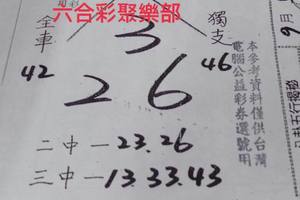 六合彩聚樂部
全車
獨支
3
42
46
2 6
本參考資料僅供台灣
電腦公益彩券選號用
二中－23.26
三中－13.33.43
9月